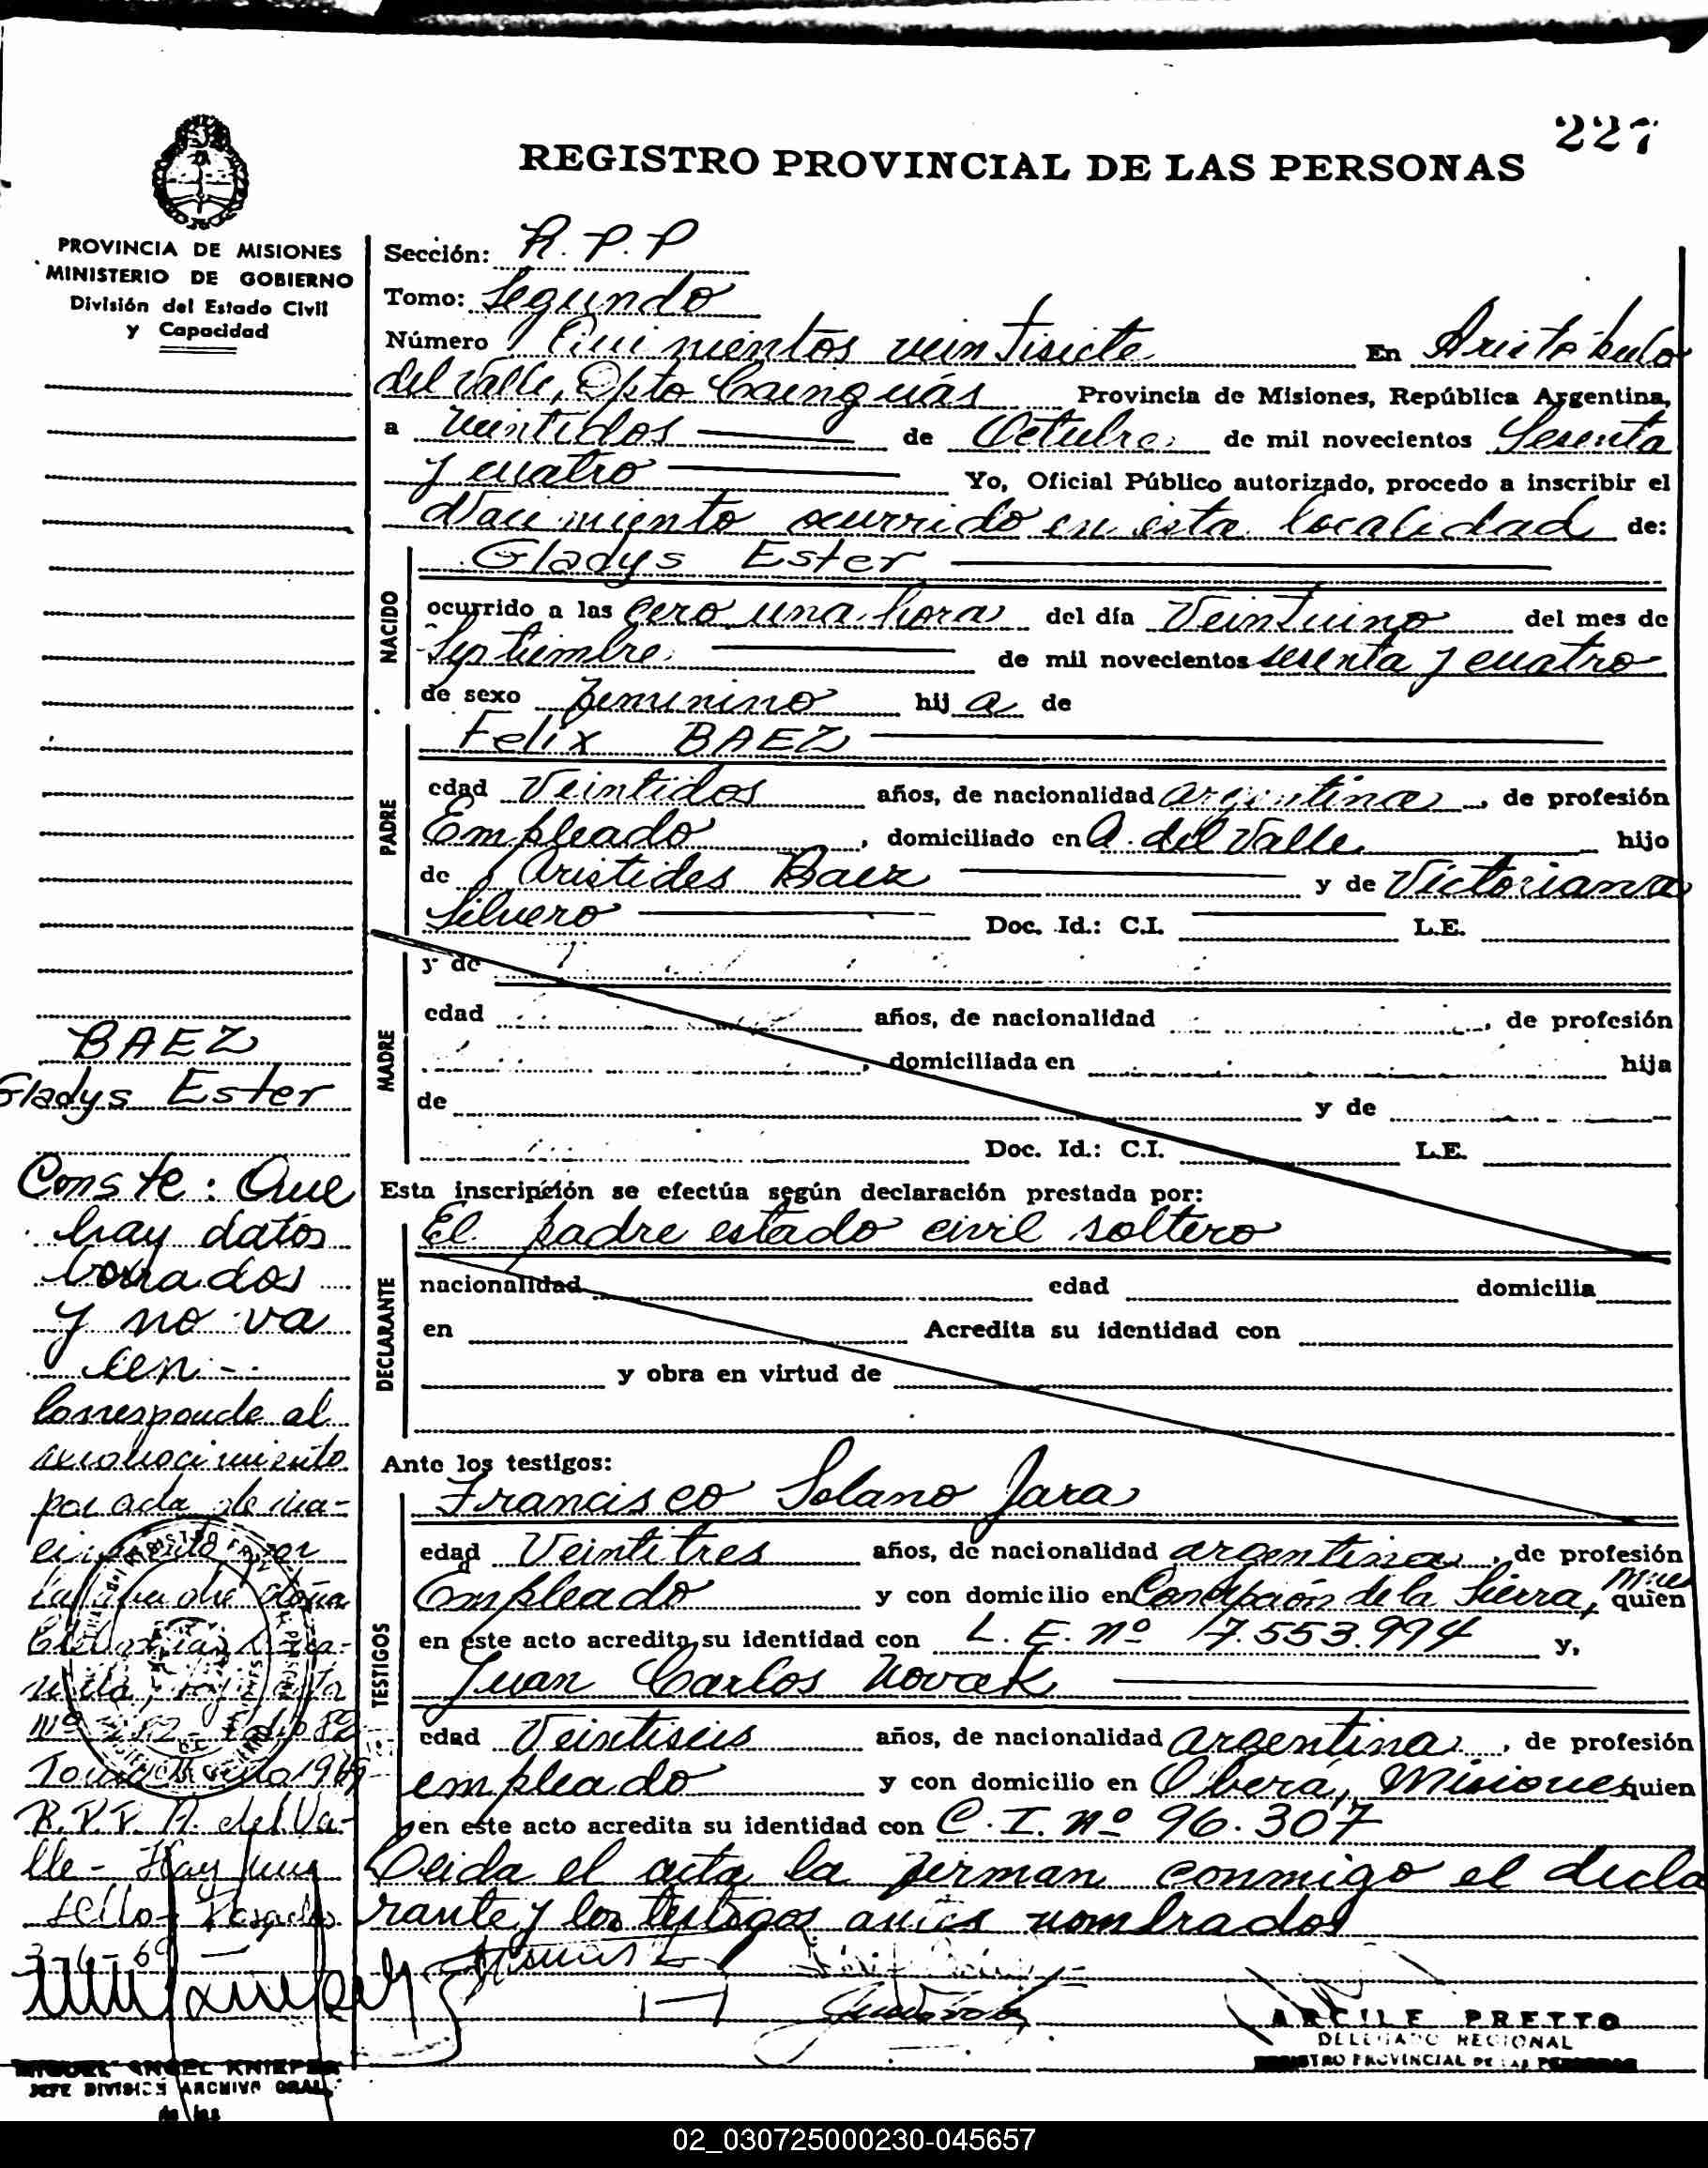 227
REGISTRO PROVINCIAL DE LAS PERSONAS
PROVINCIA DE MISIONES
MINISTERIO DE GOBIERNO
División del Estado Civil
y Capacidad
Sección: R.P.P
Tomo: Segundo
Número Quinientos veintisiete En Aristóbulo
del Valle, Dpto Cainguás Provincia de Misiones, República Argentina,
a Veintidos de Octubre de mil novecientos Sesenta
y cuatro Yo, Oficial Público autorizado, procedo a inscribir el
Nacimiento ocurrido en esta localidad de:
NACIDO
Gladys Ester
ocurrido a las cero una hora del día Veintiuno del mes de
Septiembre de mil novecientos sesenta y cuatro
de sexo femenino hij a de
PADRE
Felix BAEZ
edad Veintidos años, de nacionalidad argentina, de profesión
Empleado, domiciliado en A. del Valle hijo
de Aristides Baez y de Victoriana
Silvero Doc. Id.: C.I. L.E.
MADRE
y de
edad años, de nacionalidad , de profesión
, domiciliada en hija
de y de
Doc. Id.: C.I. L.E.
Esta inscripción se efectúa según declaración prestada por:
DECLARANTE
El padre estado civil soltero
nacionalidad edad domicilia
en Acredita su identidad con
y obra en virtud de
Ante los testigos:
TESTIGOS
Francisco Solano Jara
edad Veintitres años, de nacionalidad argentina, de profesión
Empleado y con domicilio en Concepción de la Sierra, Mnes quien
en este acto acredita su identidad con L.E. nº 7.553.994 y,
Juan Carlos Novak
edad Veintiseis años, de nacionalidad argentina, de profesión
empleado y con domicilio en Oberá, Misiones quien
en este acto acredita su identidad con C.I. Nº 96.307
Leida el acta la firman conmigo el decla
rante y los testigos antes nombrados
BAEZ
Gladys Ester
Conste: Que
hay datos
borrados
y no va
len -.
Corresponde al
reconocimiento
por acta de na-
cimiento por
la madre doña
Nº 282 - Folio 82
Tomo 1969
R.P.P. A. del Va-
lle - Hay firma
sello
3-6-69
MIGUEL ANGEL KNIEPER
JEFE DIVISION ARCHIVO GRAL.
de las
ARCILE PRETTO
DELEGADO REGIONAL
REGISTRO PROVINCIAL DE LAS PERSONAS
02_030725000230-045657